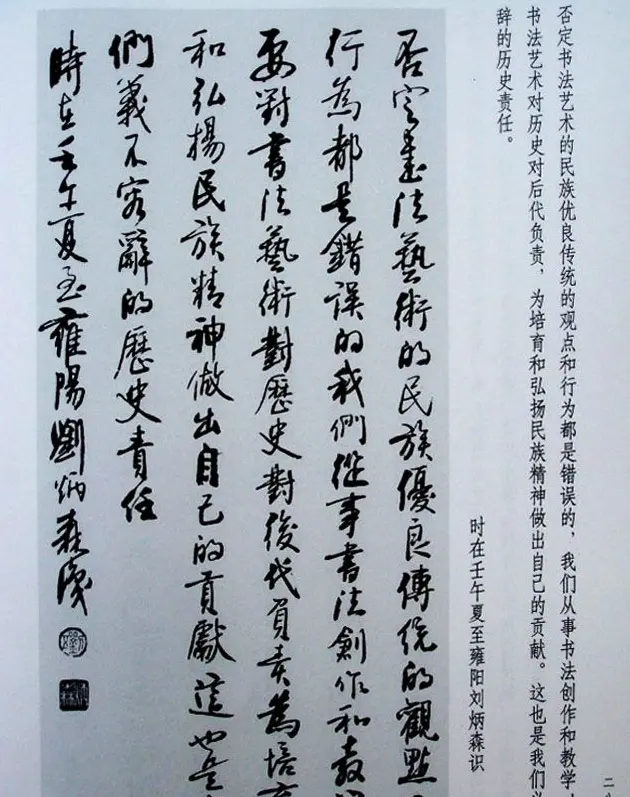 否定书法艺术的民族优良传统的观点和行为都是错误的，我们从事书法创作和教学，
书法艺术对历史对后代负责，为培育和弘扬民族精神做出自己的贡献。这也是我们
辞的历史责任。
时在壬午夏至雍阳刘炳森识
否定書法藝術的民族優良傳統的觀點
行為都是錯誤的我們從事書法創作和教
要對書法藝術對歷史對後代負責為培育
和弘揚民族精神做出自己的貢獻這也是
們義不容辭的歷史責任
時在壬午夏至雍陽劉炳森識